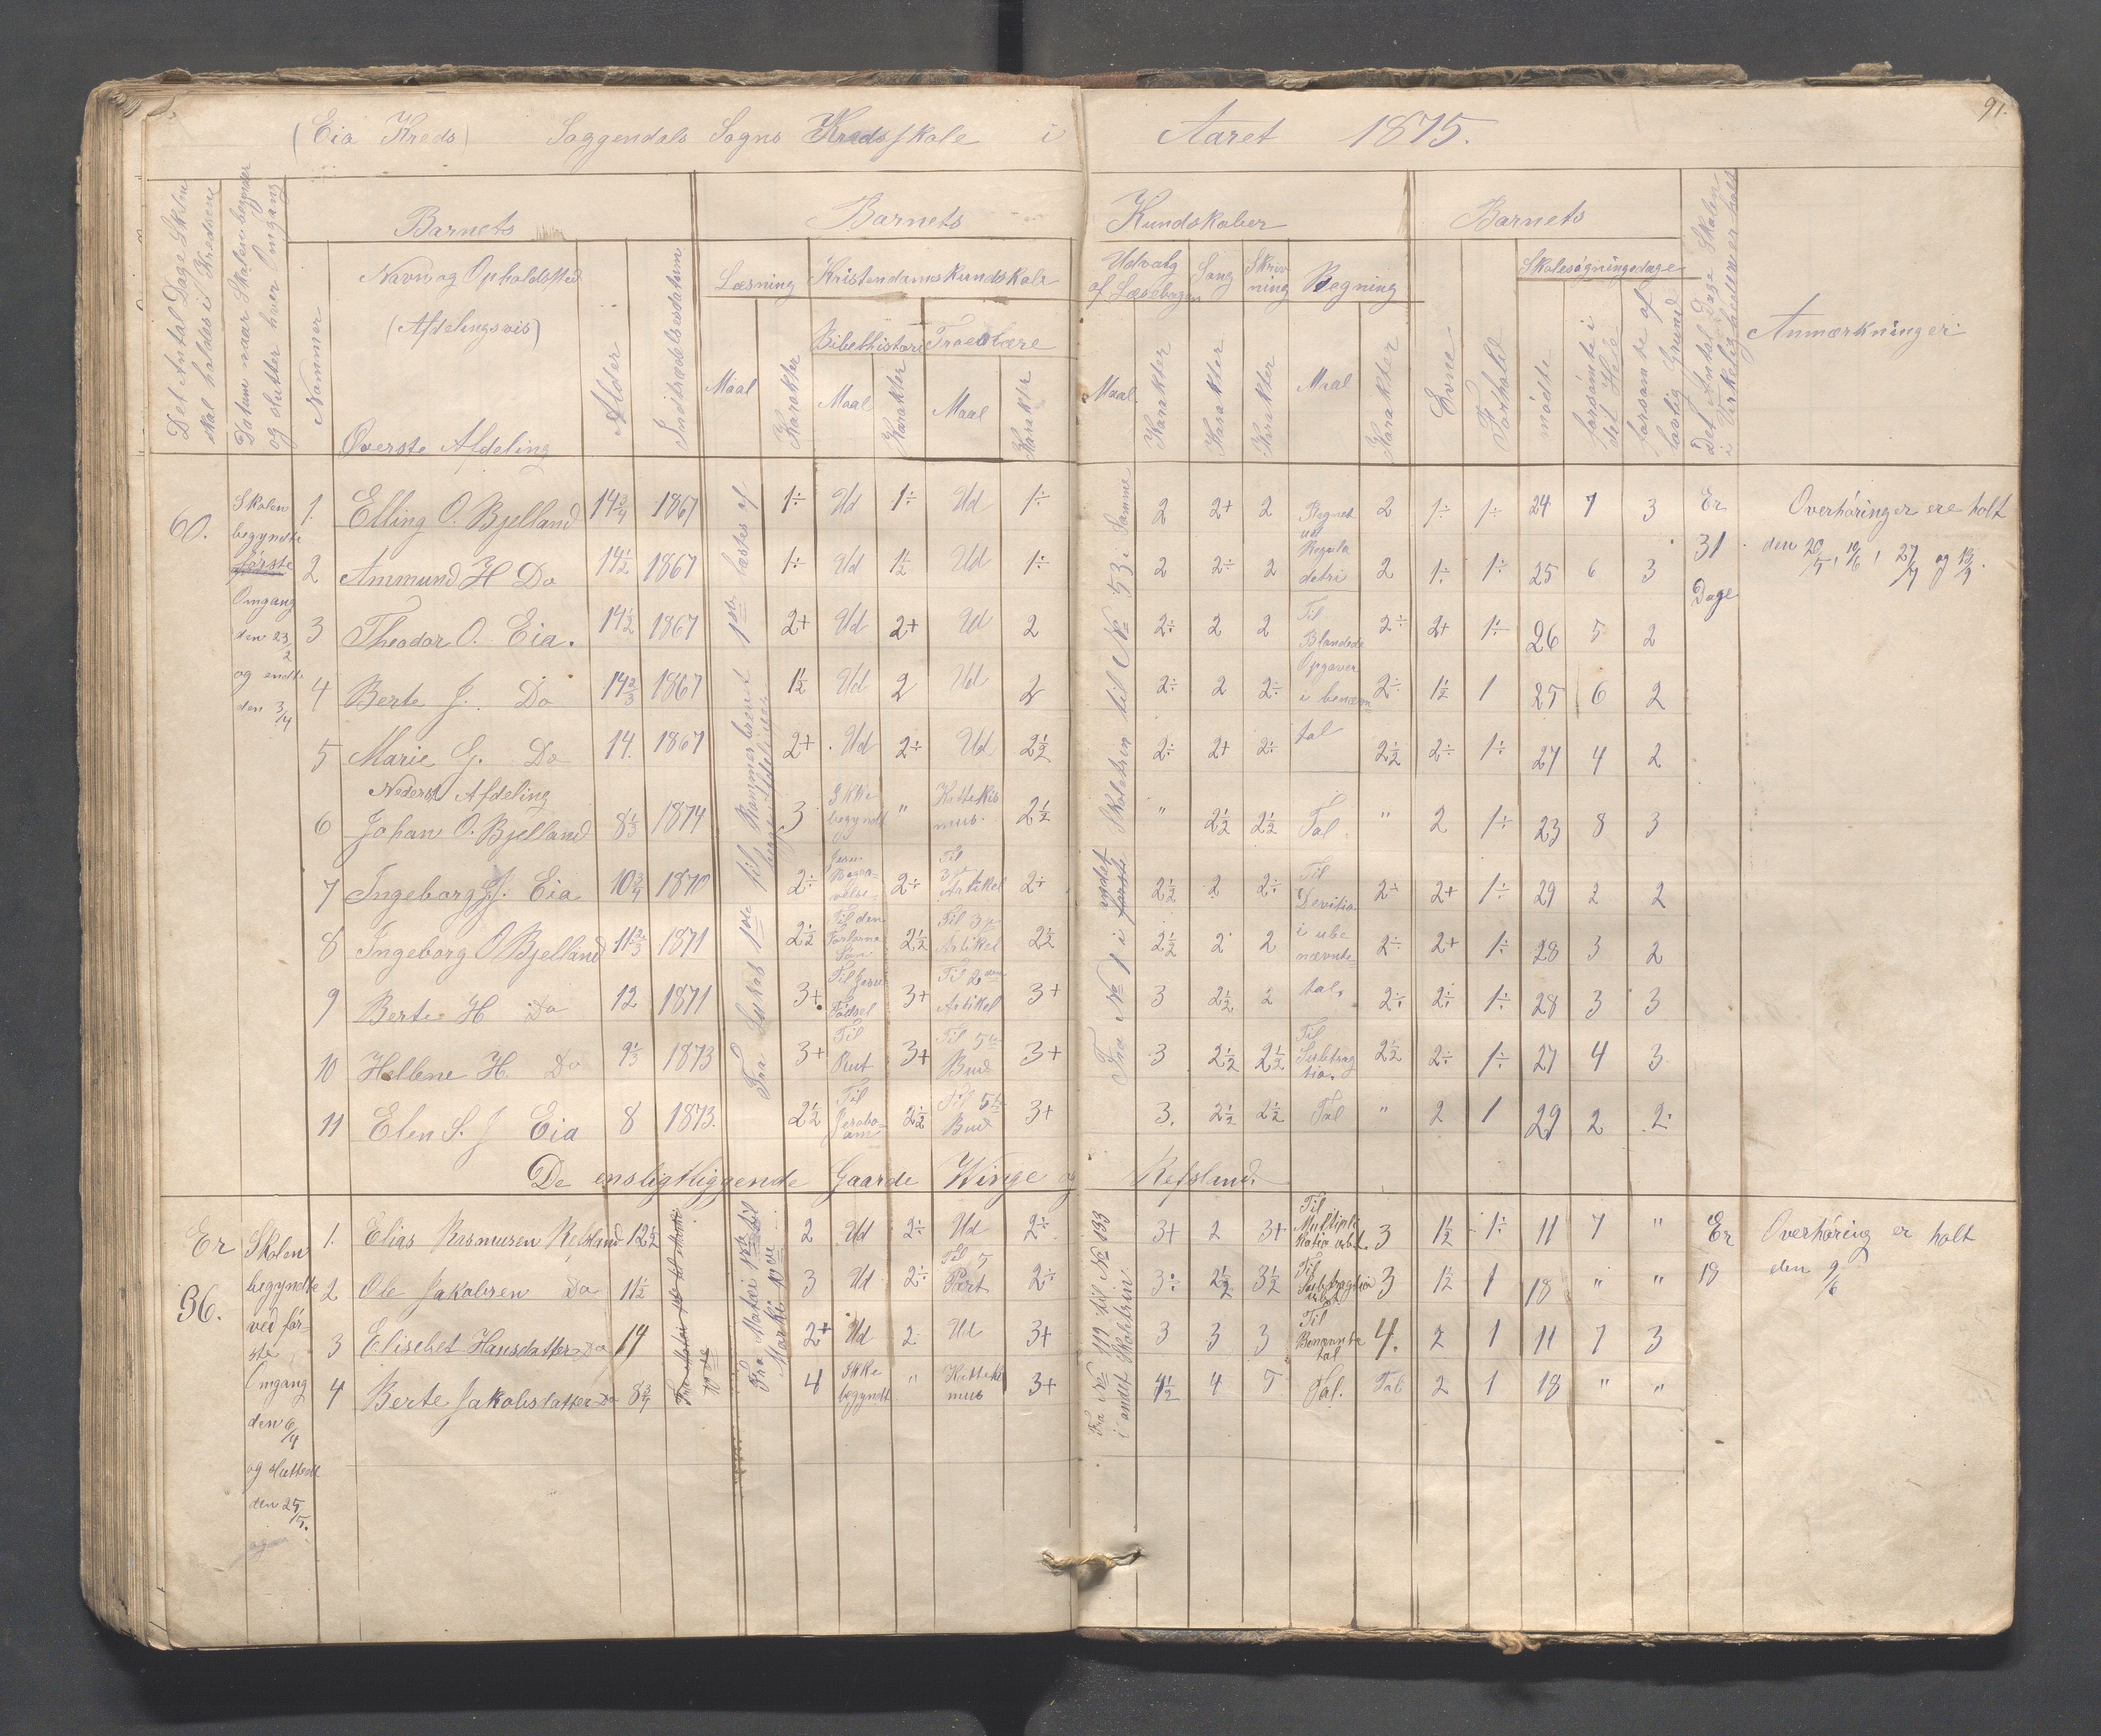 91.
(Eia Kreds) Soggendals Sogns Kredsskole i Aaret 1875.
Det Antal Dage Skolen skal holdes i Kredsene
Datum naar Skolen begynder og slutter hver Omgang
Nommer
Barnets
Navn og Opholdssted
(Afdelingsvis)
Øverste Afdeling
Alder
Indtrædelsesdatum
Barnets Kundskaber
Læsning
Maal
Karakter
Kristendomskundskab
Bibelhistorie
Maal
Karakter
Troeslære
Maal
Karakter
Udvalg af Læsebogen
Maal
Karakter
Sang
Karakter
Skrivning
Karakter
Regning
Maal
Karakter
Barnets
Evne
Forhold
Skolesøgningsdage
mødte
forsømte i det Hele
forsømte af lovlig Grund
Det Antal Dage Skolen i Virkeligheden er holt
Anmærkninger
60.
Skolen begyndte første Omgang den 23/2 og endte den 3/4
1. Elling O. Bjelland 14 3/4 1867 1÷ Ud 1÷ Ud 1÷ 2 2+ 2 Regnet ud Regula detri 2 1÷ 1÷ 24 7 3
2 Ammund H Do 14 1/2 1867 1÷ Ud 1 1/2 Ud 1÷ 2 2÷ 2 2 1÷ 1÷ 25 6 3
3 Theodor O. Eia. 14 1/2 1867 2+ Ud 2+ Ud 2 2÷ 2 2 Til Blandede Opgaver i benævn tal 2÷ 2+ 1÷ 26 5 2
4 Berte J. Do 14 2/3 1867 1 1/2 Ud 2 Ud 2 2÷ 2 2÷ 2÷ 1 1/2 1 25 6 2
5 Marie G. Do 14. 1867 2+ Ud 2÷ Ud 2 1/2 2÷ 2+ 2÷ 2 1/2 2÷ 1÷ 27 4 2
Nederst Afdeling
6 Johan O. Bjelland 8 1/3 1874 3 Ikke begyndt " Kattekismus. 2 1/2 " 2 1/2 2 1/2 Tal " 2 1÷ 23 8 3
7 Ingeborg J. Eia 10 3/4 1870 2÷ 2÷ Til 3 Artikel 2÷ 2 1/2 2 2÷ Til Devition i ube nævnte tal. 2÷ 2+ 1÷ 29 2 2
8 Ingeborg O Bjelland 11 2/3 1871 2 1/2 Til den Forlorne Søn 2 1/2 Til 3 Artikel 2 1/2 2 1/2 2 2 2÷ 2+ 1÷ 28 3 2
9 Berte H Do 12 1871 3+ Til Jesu Fødsel 3+ Til 2den Artikel 3+ 3 2 1/2 2 2÷ 2÷ 1÷ 28 3 3
10 Hellene H. Do 9 1/3 1873 3+ Til Rut 3+ Til 5te Bud 3+ 3 2 1/2 2 1/2 Til Subtragtion 2 1/2 2÷ 1÷ 27 4 3
11 Elen S. J Eia 8 1873. 2 1/2 Til Jeroboam 2 1/2 Til 5te Bud 3+ 3. 2 1/2 2 1/2 Tal " 2 1 29 2 2
Er 31 Dage
Overhøringer ere holt
den 20/5, 10/6, 27/7 og 13/9.
De ensligtliggende Gaarde Winge og Refsland.
Er 36.
Skolen begyndte ved første Omgang den 6/4 og sluttede den 25/5.
1. Elias Rasmusen Refsland 12 1/2 2 Ud 2÷ Ud 2÷ 3+ 2 3+ Til Multiplikation 3 1 1/2 1÷ 11 7 "
2 Ole Jakobsen Do 11 1/2 3 Ud 2÷ Til 5 Part 2÷ 3÷ 2 1/2 3 1/2 Til Subtragtion 3 1 1/2 1 18 " "
3 Elisebet Hansdatter Do 14 2+ Ud 2 Ud 3+ 3 3 3 Til Benævnte tal 4. 2 1 11 7 3
4 Berte Jakobsdatter Do 8 3/4 4 Ikke begyndt " Kattekismus 3+ 4 1/2 4 5 Tal. Tal 2 1 18 " "
Fra No 112 til No 133 i andet Skoletrin
Er 18
Overhøring er holt
den 9/6